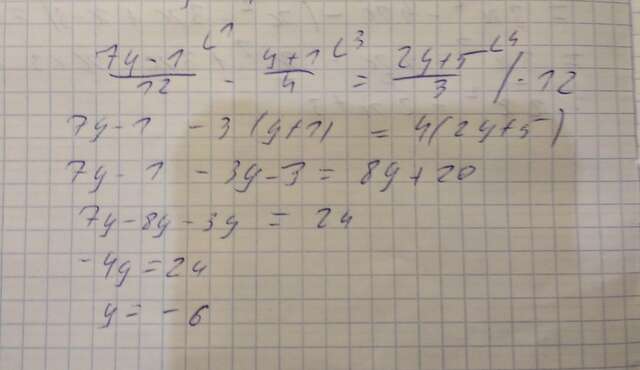 (7y-1)/12 ⌊1 - (y+1)/4 ⌊3 = (2y+5)/3 ⌊4 / · 12
7y-1 - 3(y+1) = 4(2y+5)
7y-1 - 3y-3 = 8y+20
7y-8y-3y = 24
-4y=24
y= -6